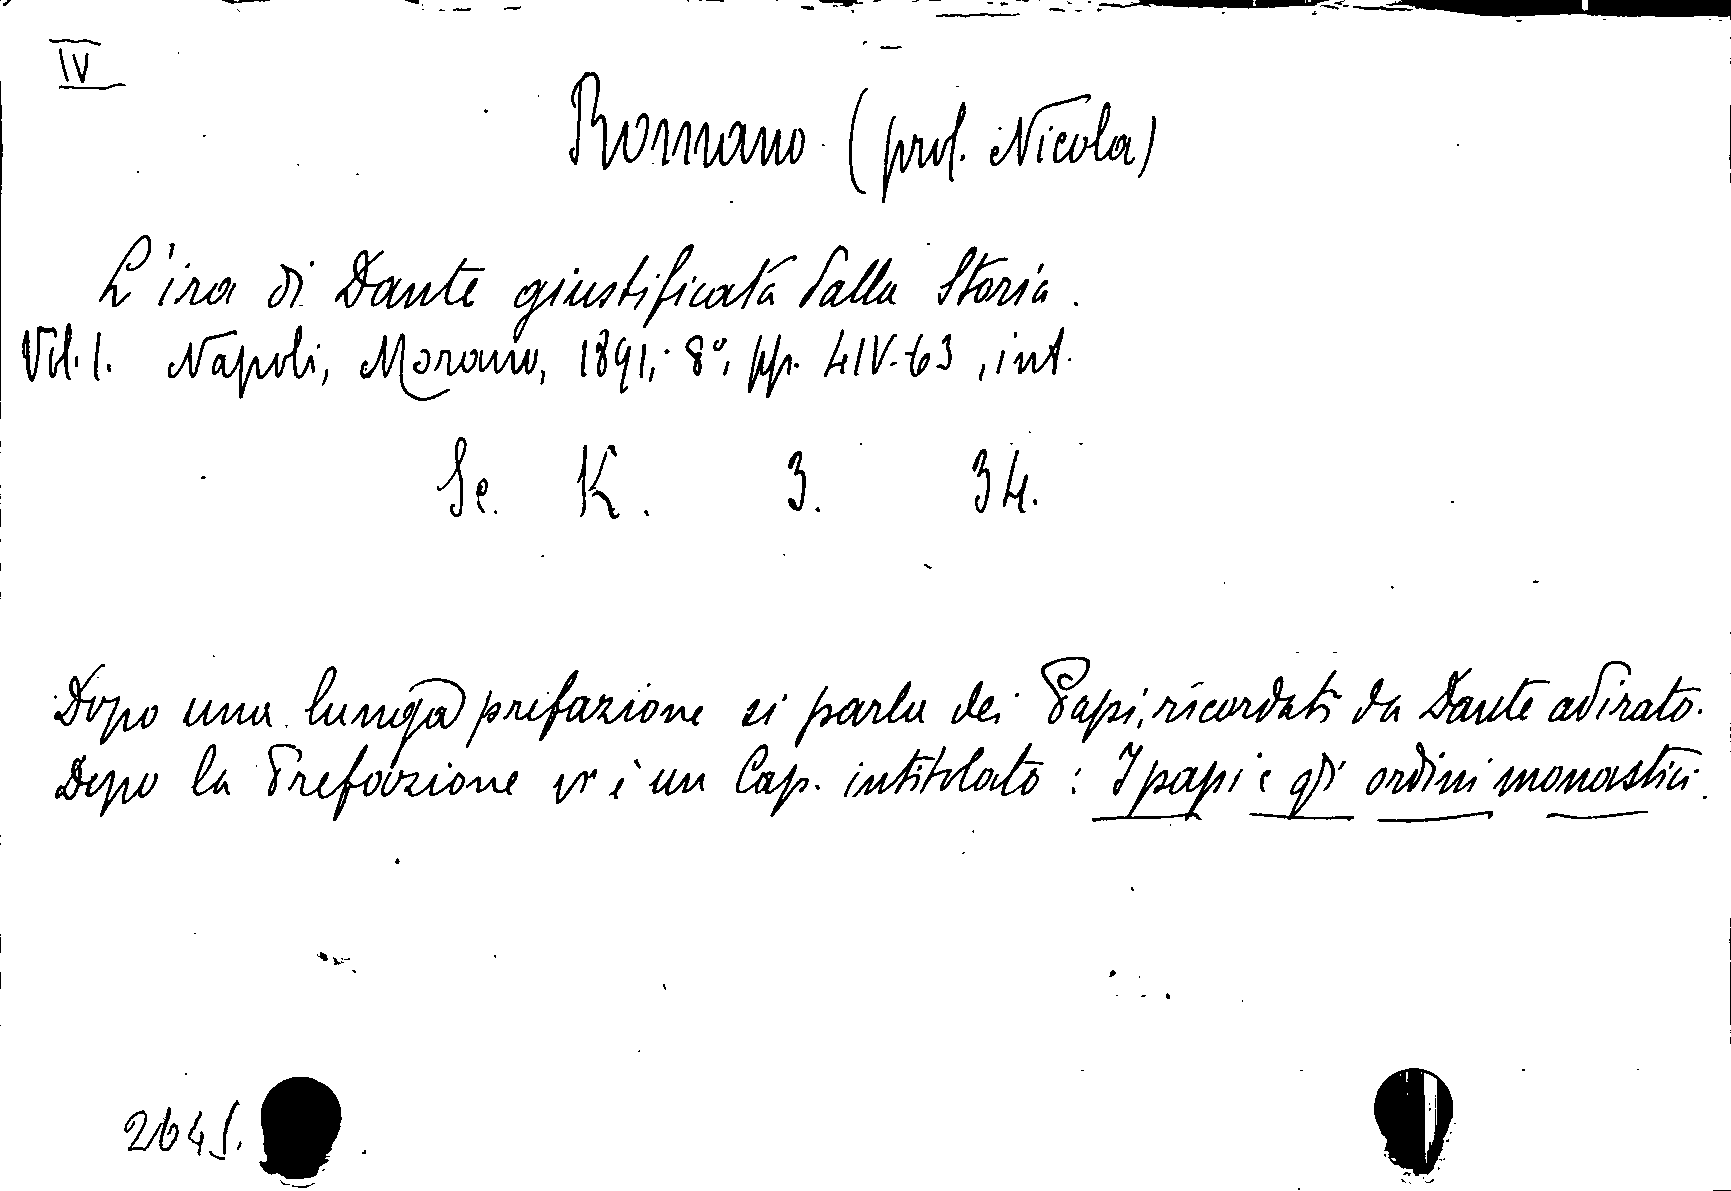 IV
Romano (prof. Nicola)
L'ira di Dante giustificata dalla Storia.
Vol. I. Napoli, Morano, 1891, 8°, pp. LIV-63, int.
Se. K. 3. 34.
Dopo una lunga prefazione si parla dei Papi, ricordati da Dante adirato.
Dopo la Prefazione vi è un Cap. intitolato: I papi e gli ordini monastici.
2645.